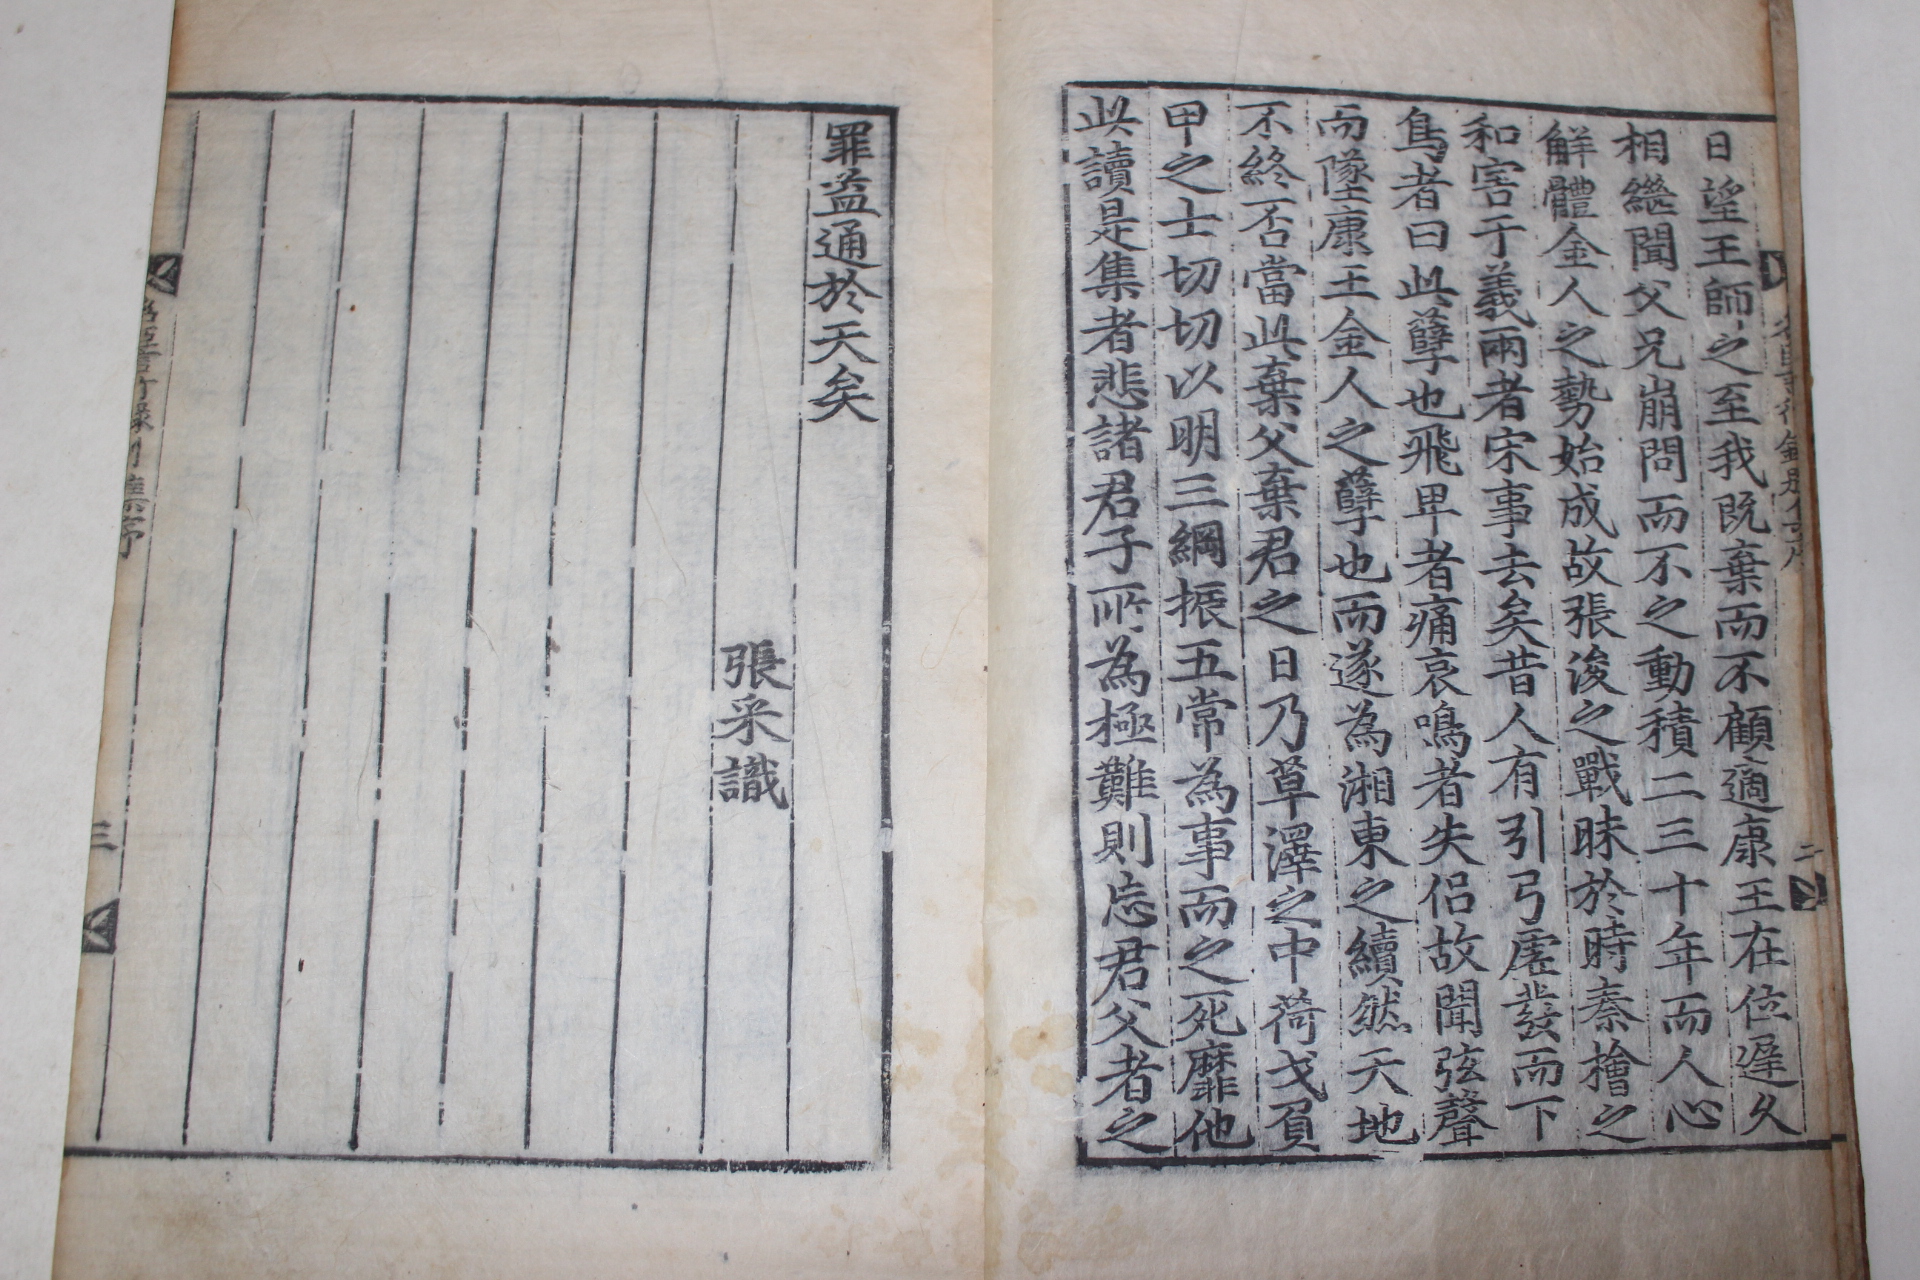 日望王師之至我既棄而不顧適康王在位遲久
相繼聞父兄崩問而不之動積二三十年而人心
解體金人之勢始成故張浚之戰昧於時秦檜之
和害于義兩者宋事去矣昔人有引弓虛發而下
鳥者曰此孽也飛卑者痛哀鳴者失侶故聞弦聲
而墜康王金人之孽也而遂為湘東之續然天地
不終否當此棄父棄君之日乃草澤之中荷戈負
甲之士切切以明三綱振五常為事而之死靡他
此讀是集者悲諸君子所為極難則忘君父者之
二
罪益通於天矣
張采識
三